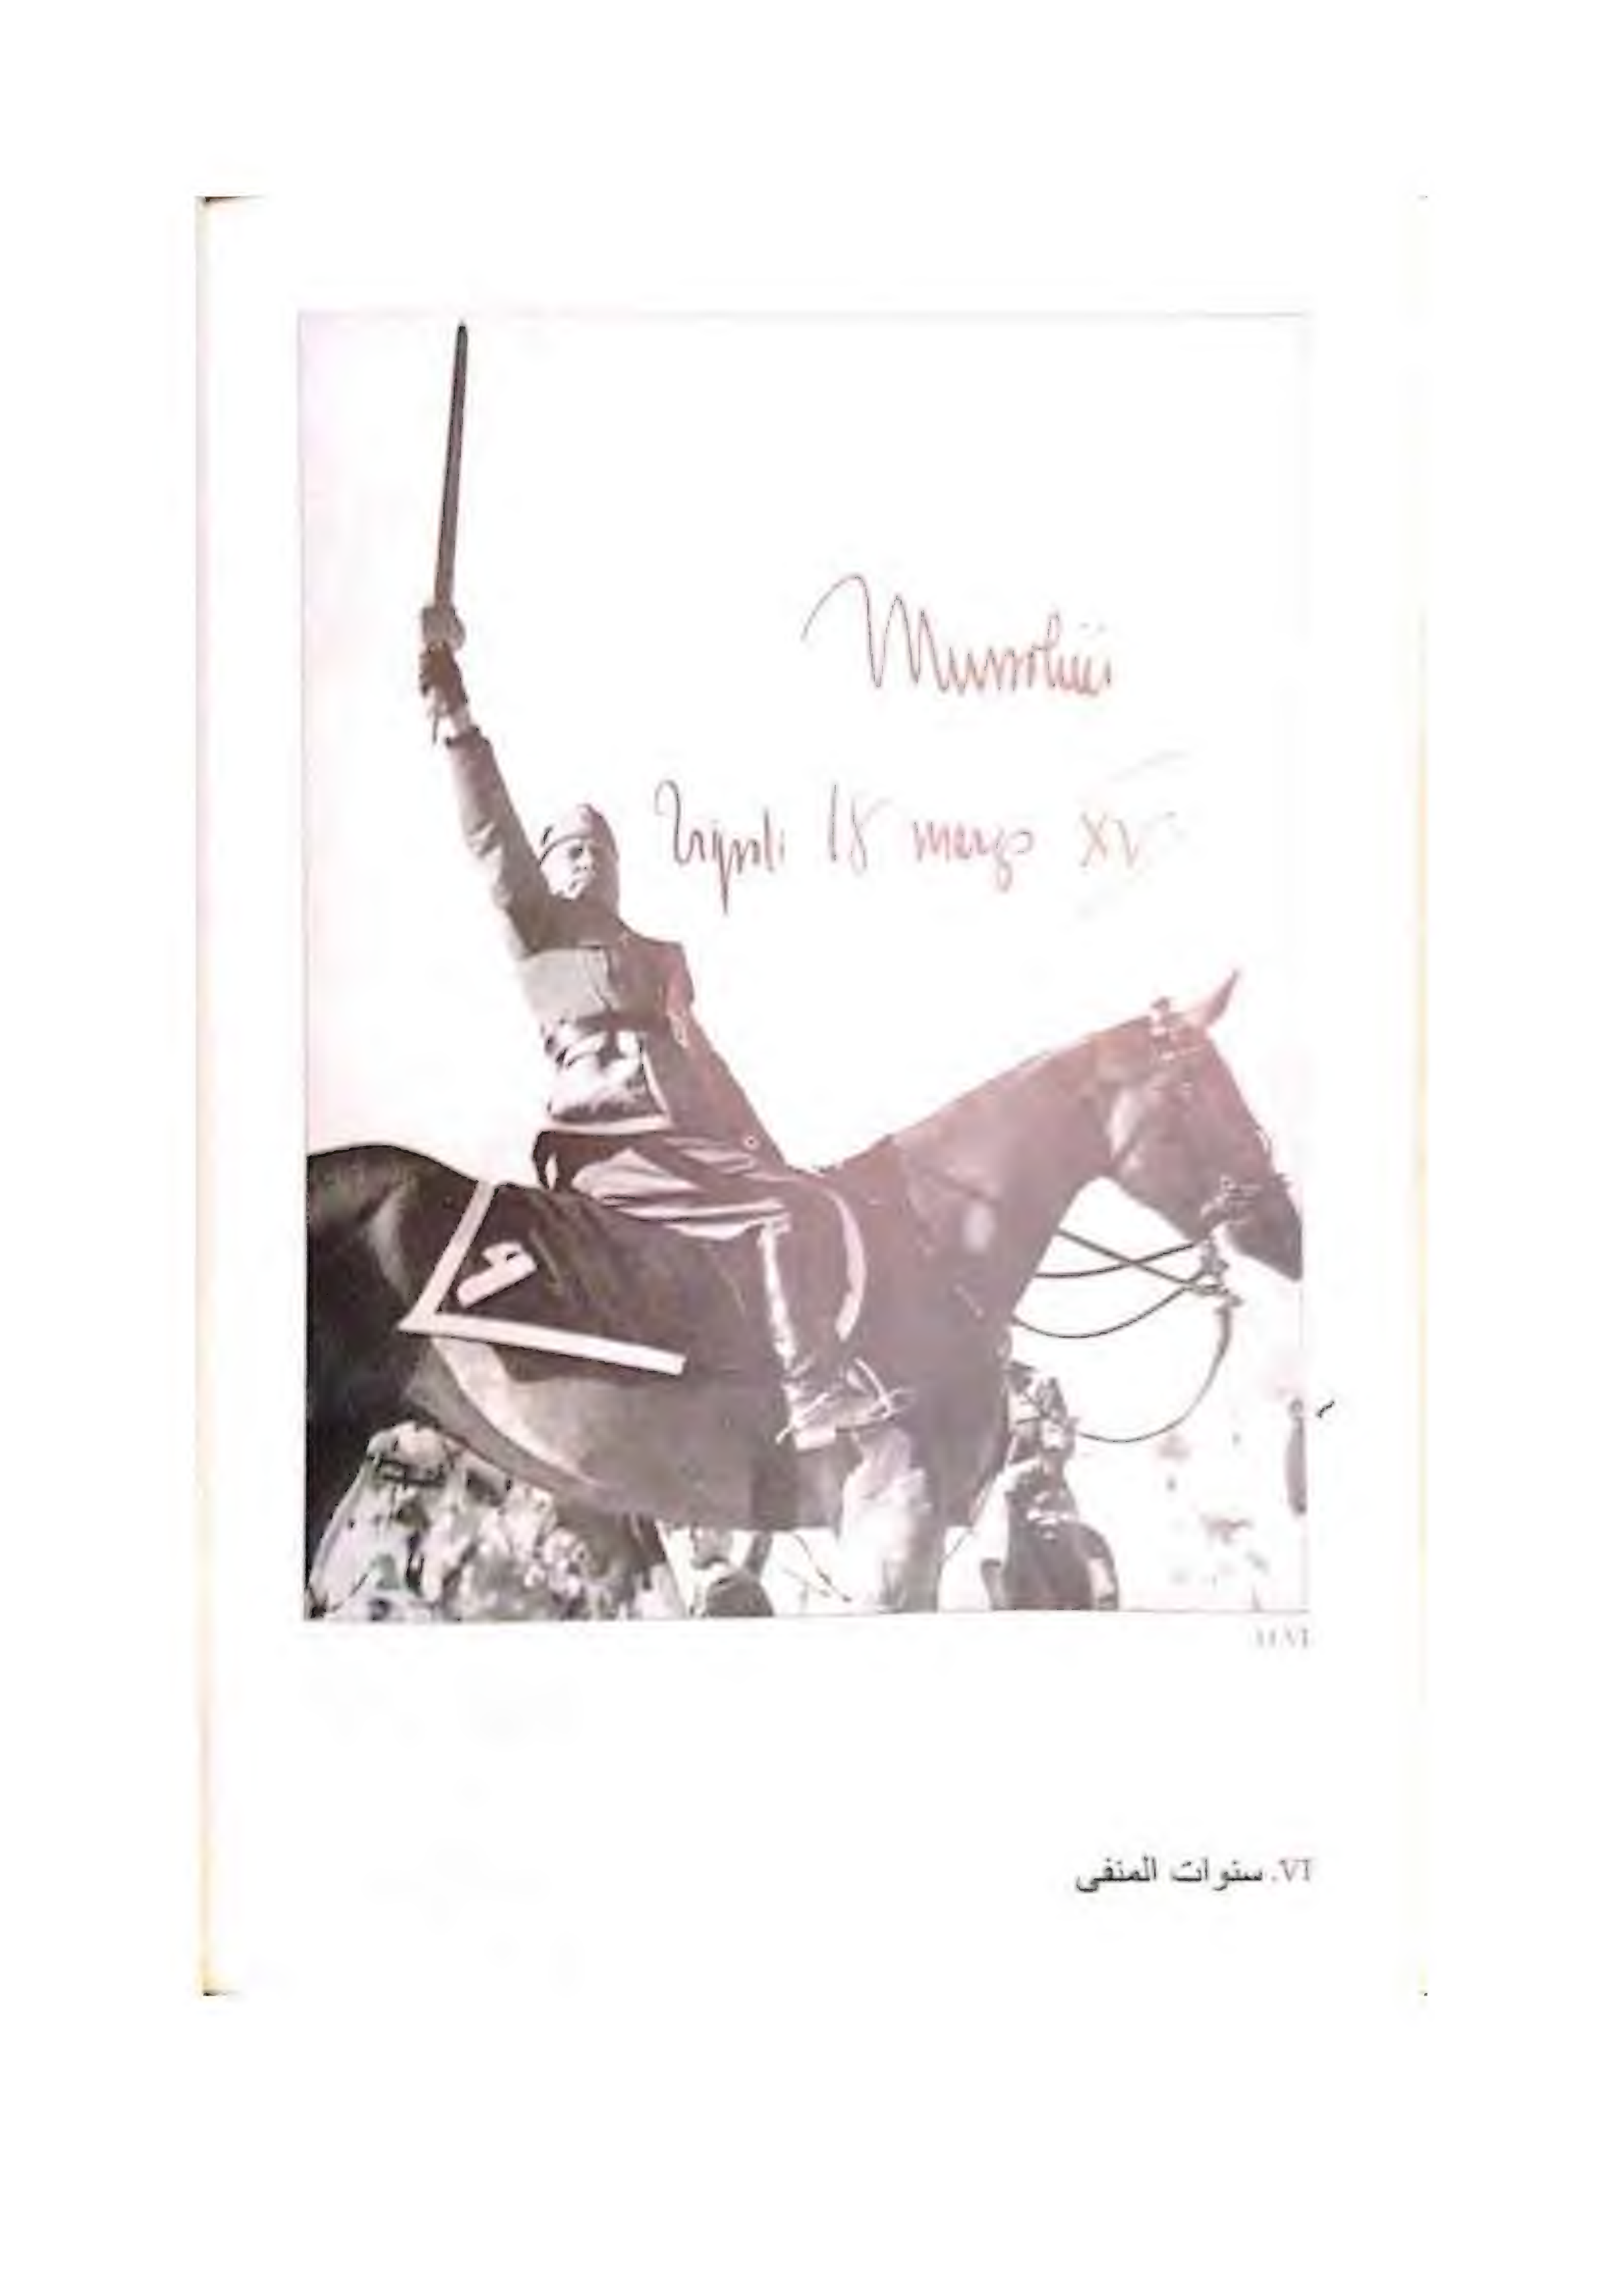 Mussolini
Tripoli 18 marzo XV
VI. سنوات المنفى